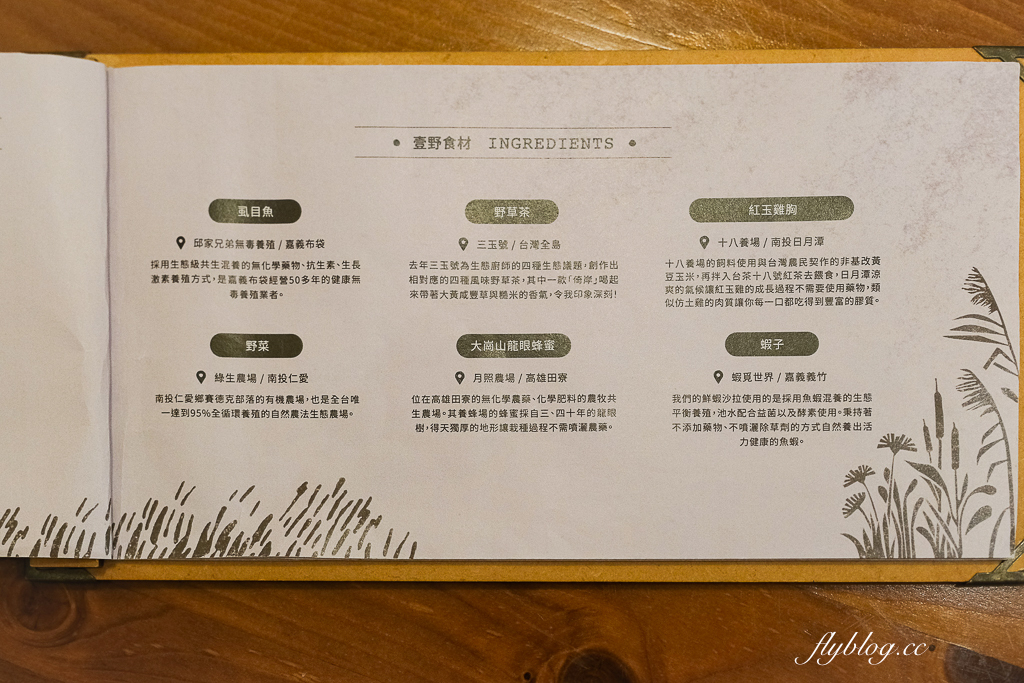 壹野食材 INGREDIENTS
虱目魚
邱家兄弟無毒養殖 / 嘉義布袋
採用生態級共生混養的無化學藥物、抗生素、生長
激素養殖方式,是嘉義布袋經營50多年的健康無
毒養殖業者。
野草茶
三玉號 / 台灣全島
去年三玉號為生態廚師的四種生態議題,創作出
相對應的四種風味野草茶,其中一款「倚岸」喝起
來帶著大黃咸豐草與糙米的香氣,令我印象深刻!
紅玉雞胸
十八養場 / 南投日月潭
十八養場的飼料使用與台灣農民契作的非基改黃
豆玉米,再拌入台茶十八號紅茶去餵食,日月潭涼
爽的氣候讓紅玉雞的成長過程不需要使用藥物,類
似仿土雞的肉質讓你每一口都吃得到豐富的膠質。
野菜
綠生農場 / 南投仁愛
南投仁愛鄉賽德克部落的有機農場,也是全台唯
一達到95%全循環養殖的自然農法生態農場。
大崗山龍眼蜂蜜
月照農場 / 高雄田寮
位在高雄田寮的無化學農藥、化學肥料的農牧共
生農場。其養蜂場的蜂蜜採自三、四十年的龍眼
樹,得天獨厚的地形讓栽種過程不需噴灑農藥。
蝦子
蝦覓世界 / 嘉義義竹
我們的鮮蝦沙拉使用的是採用魚蝦混養的生態
平衡養殖,池水配合益菌以及酵素使用。秉持著
不添加藥物、不噴灑除草劑的方式自然養出活
力健康的魚蝦。
flyblog.cc